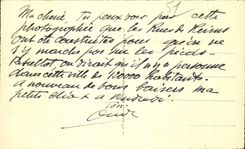 51
Ma chérie, tu peux voir par cette
photographie que les Rues de Reims
ont été construites pour qu'on ne
s'y marche pas sur les pieds.
Résultat on dirait qu'il n'y a personne
dans cette ville de habitants.
A nouveau de bons baisers ma
petite et à
Ton